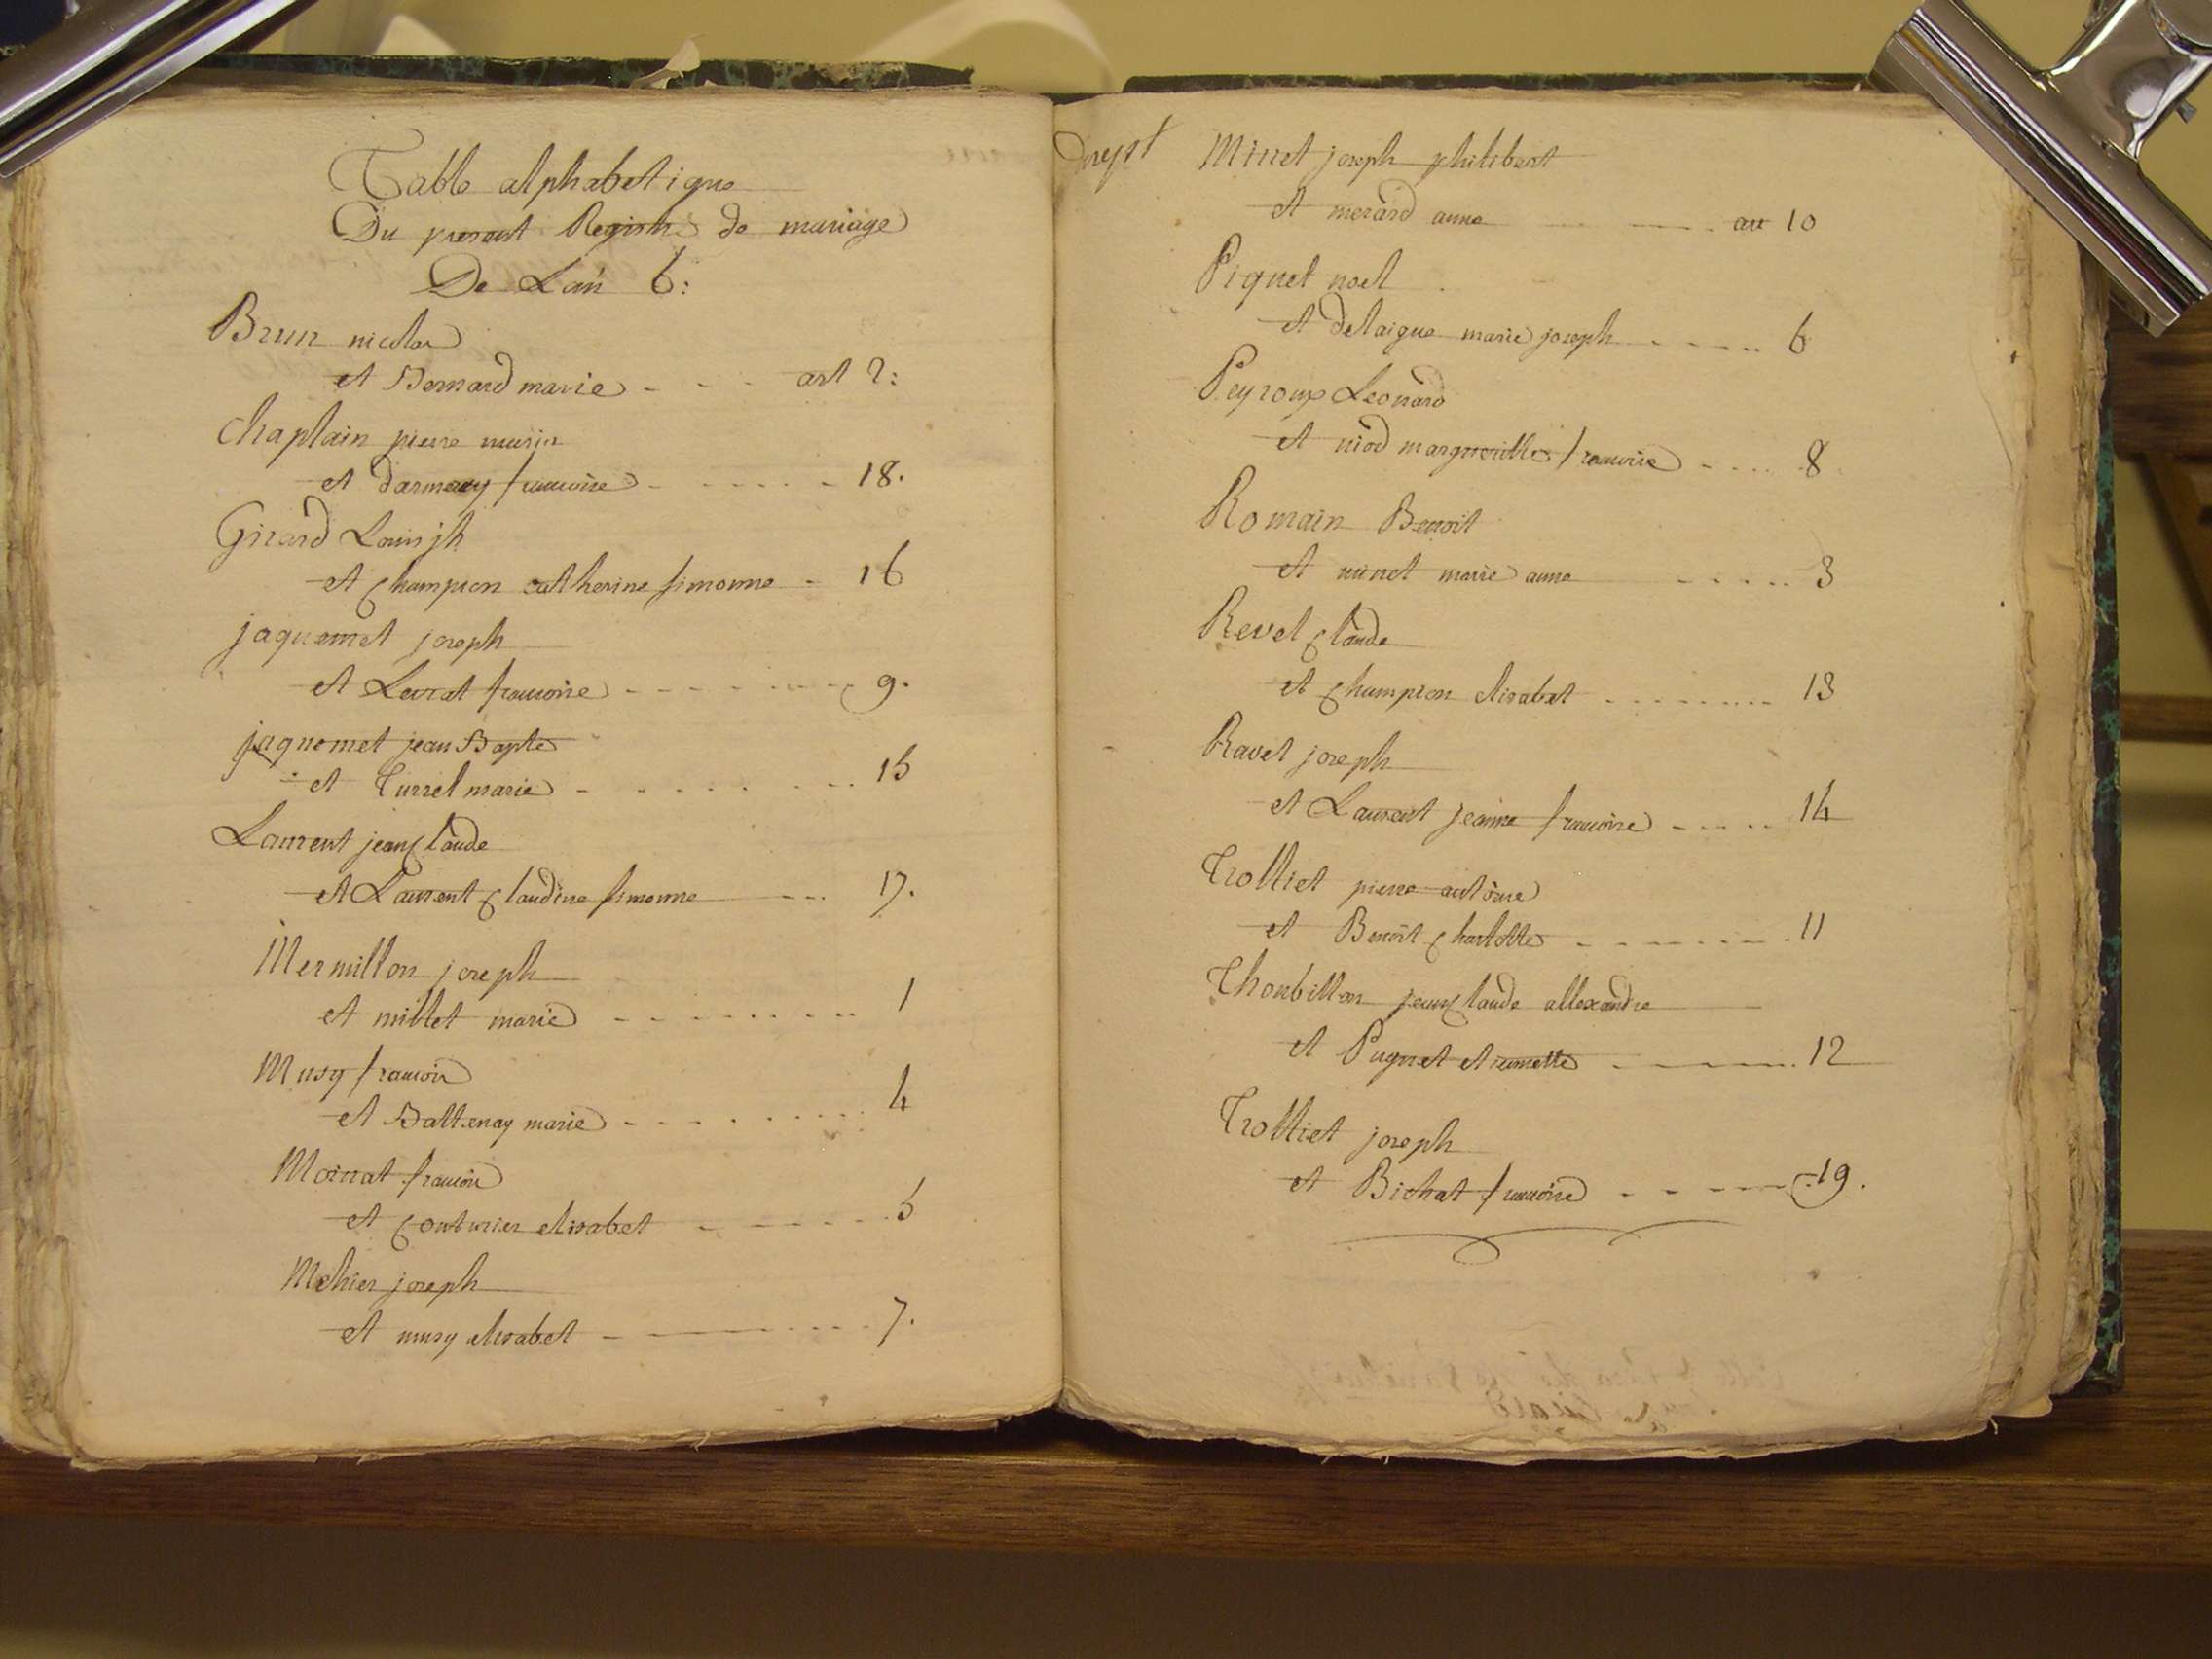 Table alphabetique
Du present Registre de mariage
De L'an 6:
Brun nicolas
et Bernard marie - - - art 2:
Chaplain pierre marin
et darmacy francoise - - - - - 18.
Girard Louis jh
et Champion catherine simonne - 16
jaquemet joseph
et Levrat francoise - - - - - - - 9.
jaquemet jean Bapte
et Turrel marie - - - - - - - 15
Laurent jean Claude
et Laurent Claudine simonne - - - 17.
Mermillon joseph
et millet marie - - - - - - - - 1
Musy francois
et Baltenay marie - - - - - - - - 4
Moinat francois
et Couturier elisabet - - - - - - 5
Mehier joseph
et musy elisabet - - - - - - - - 7.
Minet joseph philibert
et merard anne - - - - art 10
Piquet noel
et delaigue marie joseph - - - - - 6
Peyroux Leonard
et niod margueritte francoise - - - - 8
Romain Benoit
et minet marie anne - - - - - 3
Revel Claude
et Champion elisabet - - - - - - - - 13
Ravet joseph
et Laurent jeanne francoise - - - - - 14
Trolliet pierre antoine
et Benoit Charlotte - - - - - - - - 11
Thorbillon jean Claude allexandre
et Pugnet etiennette - - - - - - 12
Trolliet joseph
et Bichat francoise - - - - - - 19.